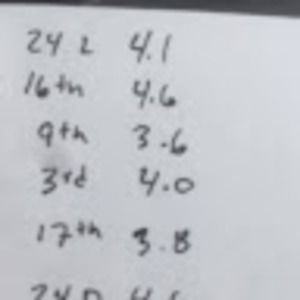 242 4.1
16th 4.6
9th 3.6
3rd 4.0
17th 3.8